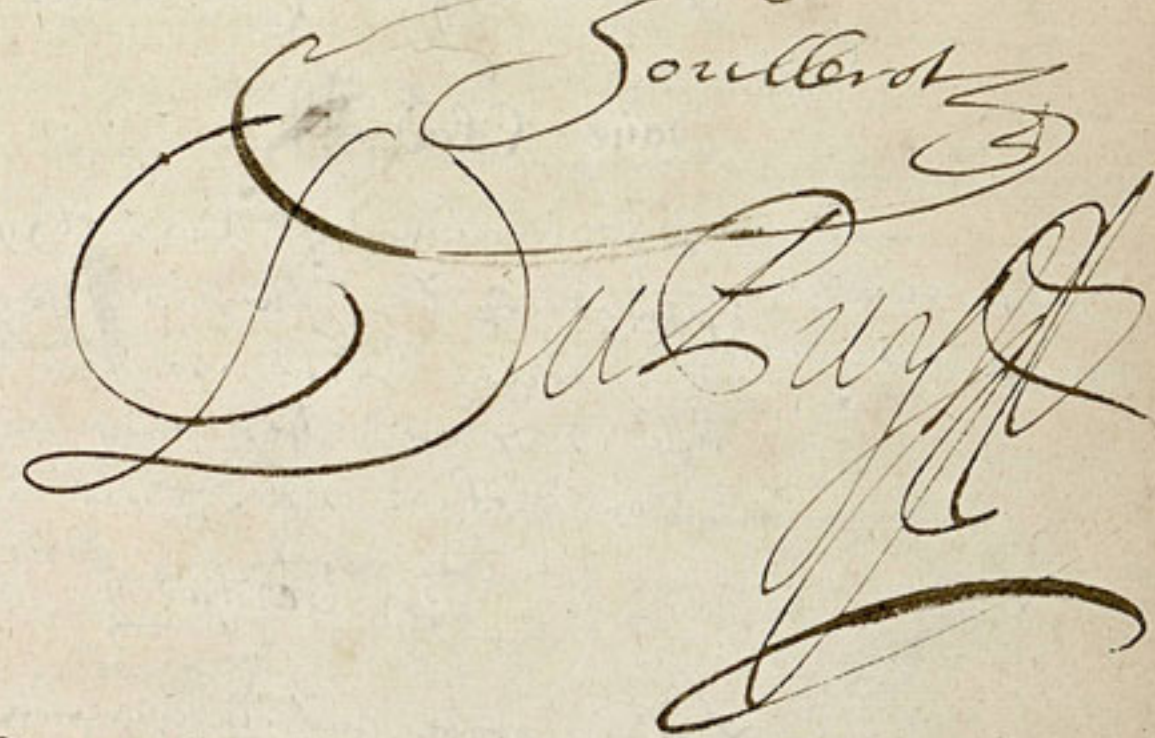 Soullerot
DuPuy